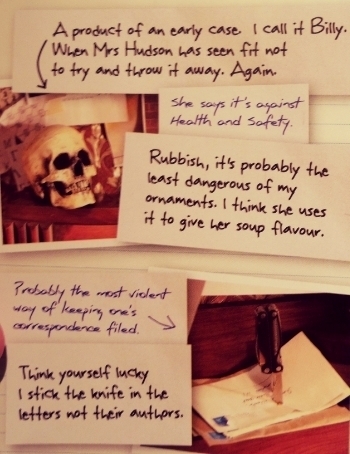 A product of an early case. I call it Billy.
When Mrs Hudson has seen fit not
to try and throw it away. Again.
She says it's against
Health and Safety.
Rubbish, it's probably the
least dangerous of my
ornaments. I think she uses
it to give her soup flavour.
Probably the most violent
way of keeping one's
correspondence filed.
Think yourself lucky
I stick the knife in the
letters not their authors.